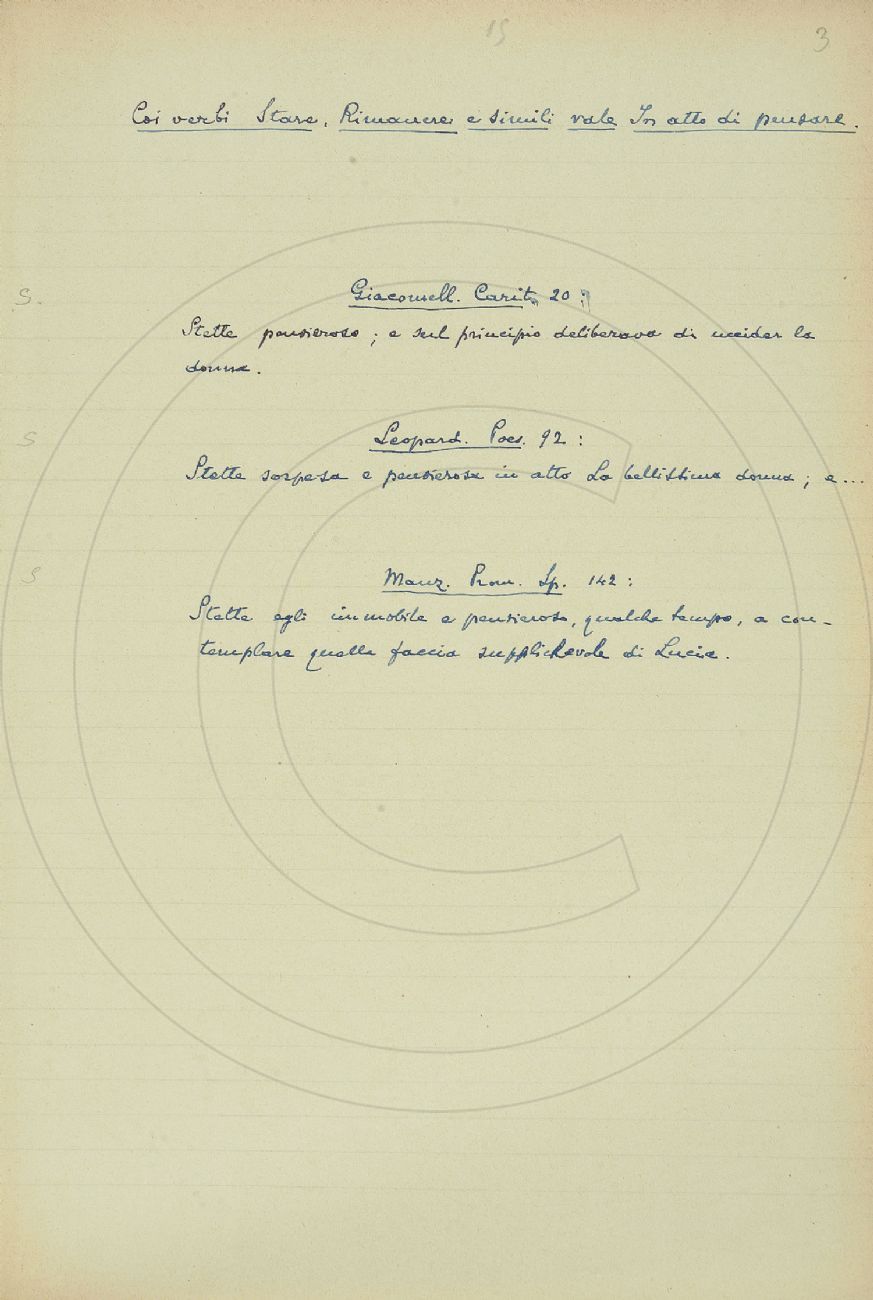 15 3
Coi verbi Stare, Rimanere e simili vale In atto di pensare.
S. Giacomell. Carit. 20:
Stette pensieroso; e sul principio deliberava di uccider la
donna.
S Leopard. Poes. 92:
Stette sorpesa e pensierosa in atto La bellissima donna; e...
S Manz. Prom. Sp. 142:
Stette egli immobile e pensieroso, qualche tempo, a con-
templare quella faccia supplichevole di Lucia.